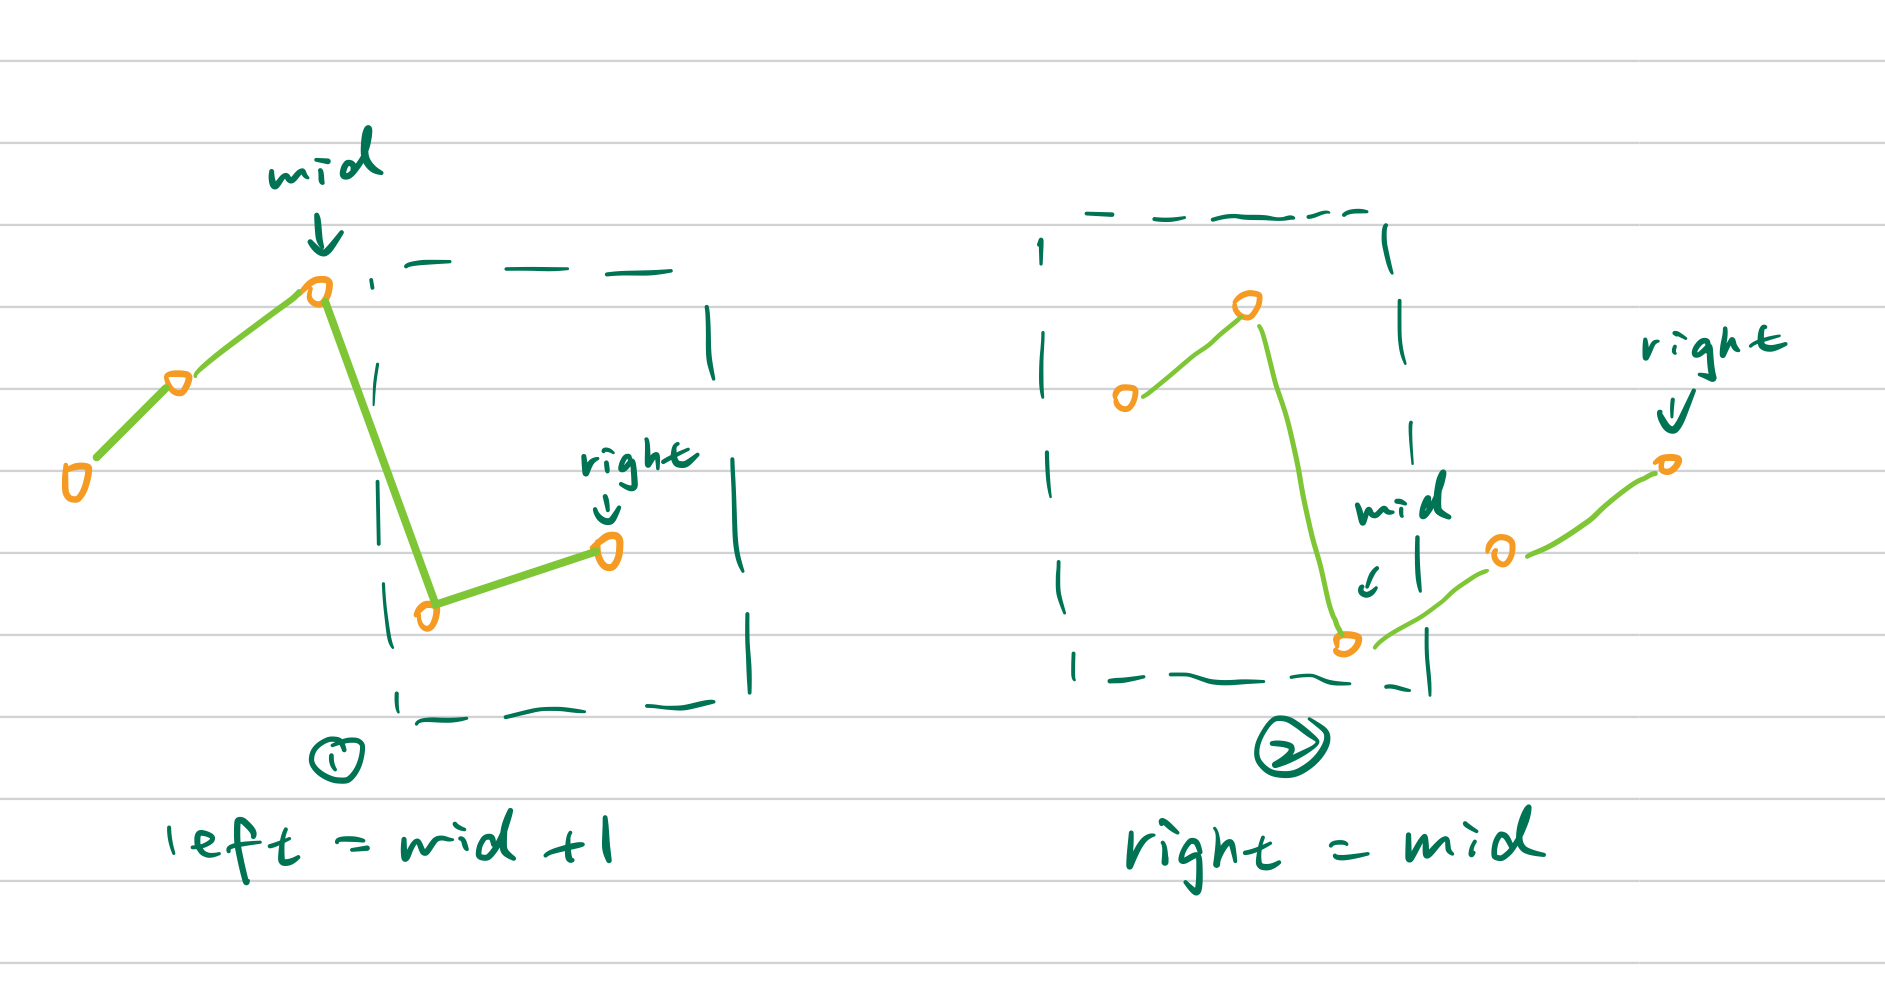 mid
right
①
left = mid +1
right
mid
②
right = mid